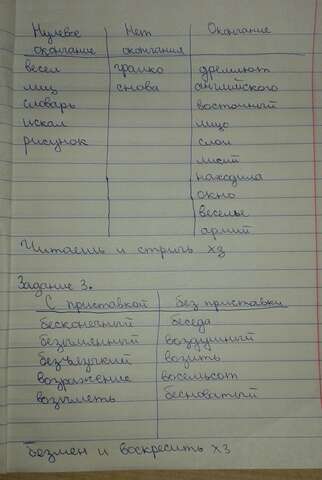 Нулевое Нет Окончание
окончание окончания
весел громко дремлют
лиц снова английского
словарь восточный
искал лицо
рисунок слои
лисий
находила
окно
веселье
армий
Читаешь и стричь хз
Задание 3.
С приставкой без приставки
бесконечный беседа
безымянный воздушный
возить
возражение восемьсот
возыметь бесноватый
Безмен и воскресить хз